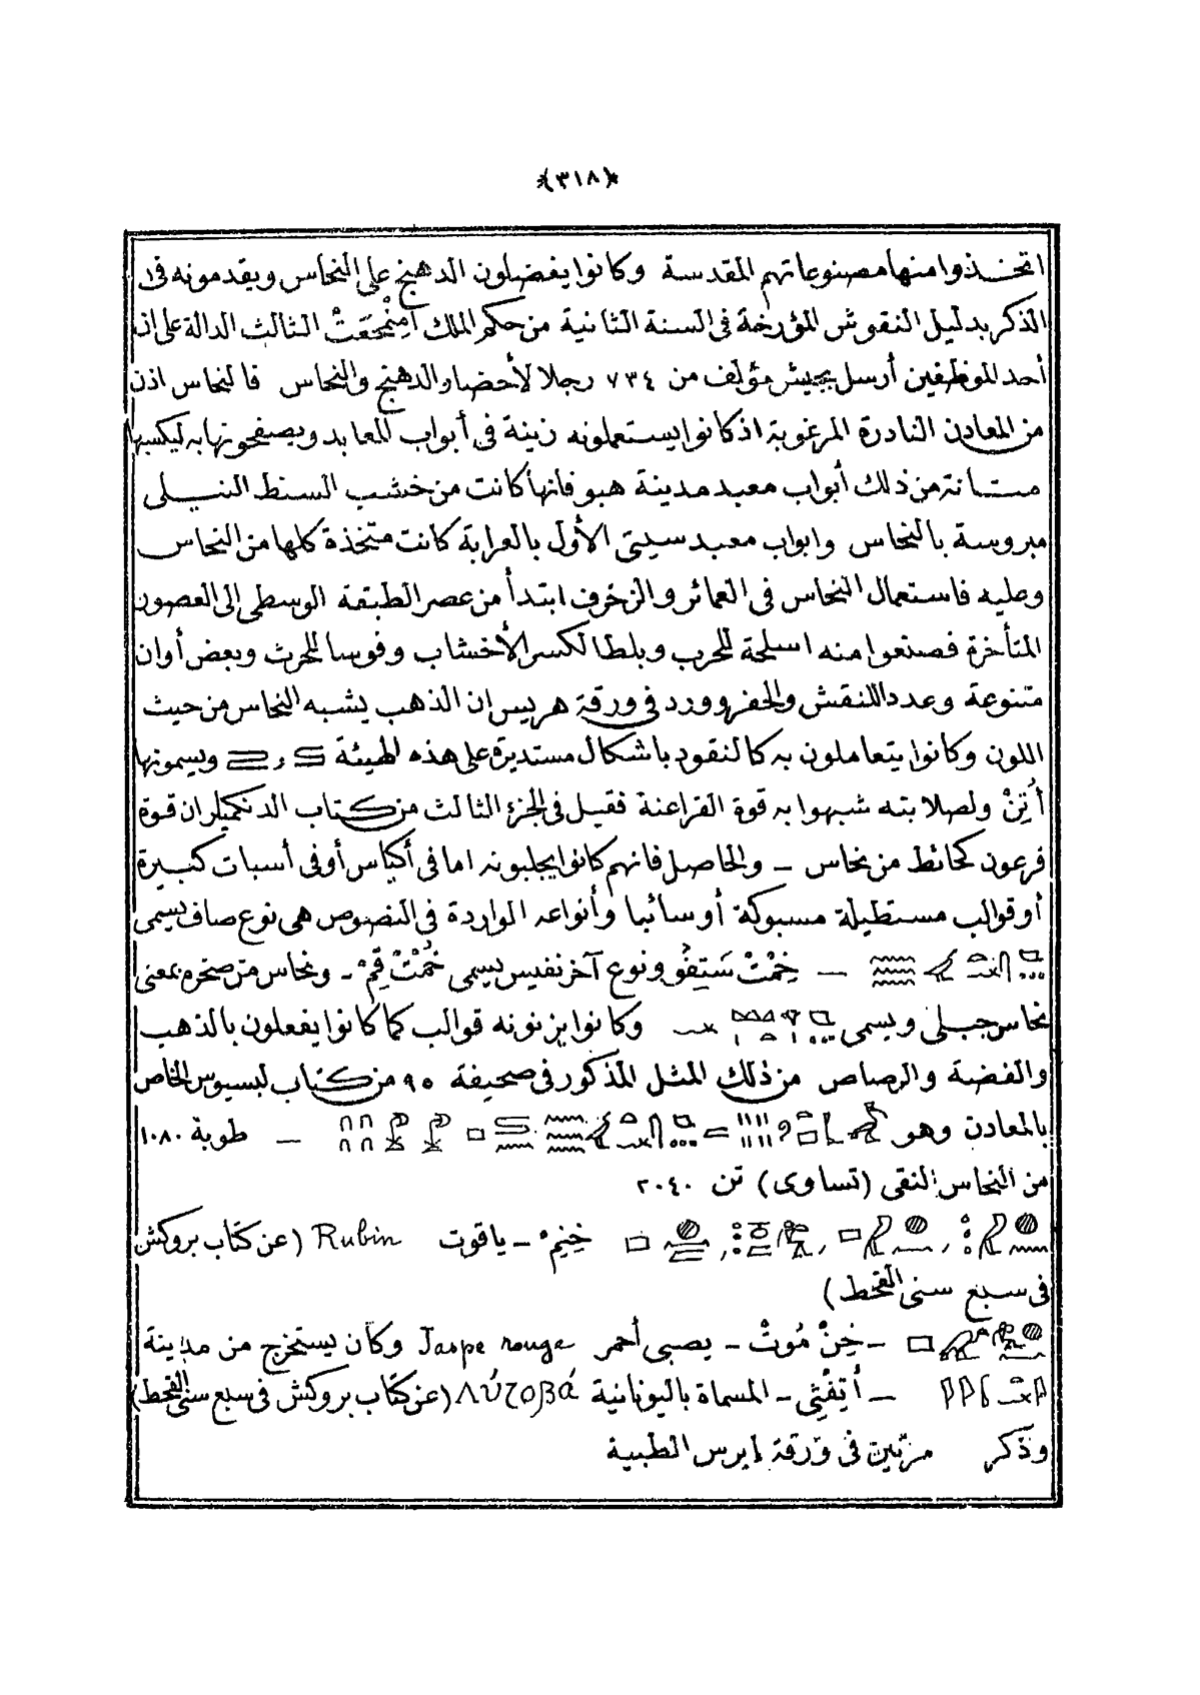 (٣١٨)
اتخذوا منها مصنوعاتهم المقدسة وكانوا يفضلون الدهنج على النحاس ويقدمونه فى
الذكر بدليل النقوش المؤرخة فى السنة الثانية من حكم الملك أمِنْمحَعَتْ الثالث الدالة على ان
أحد الموظفين أرسل بجيش مؤلف من ٧٣٤ رجلا لأحضار الدهنج والنحاس فالنحاس اذن
من المعادن النادرة المرغوبة اذ كانوا يستعملونه زينة فى أبواب المعابد ويصفحونها به ليكسبها
متانة من ذلك أبواب معبد مدينة هبو فانها كانت من خشب السنط النيلى
مبروسة بالنحاس وابواب معبد سيتى الأول بالعرابة كانت متخذة كلها من النحاس
وعليه فاستعمال النحاس فى العمائر والزخرف ابتدأ من عصر الطبقة الوسطى إلى العصور
المتأخرة فصنعوا منه اسلحة للحرب وبلطا لكسر الأخشاب وفوسا للحرث وبعض أوان
متنوعة وعددا للنقش والحفر وورد فى ورقة هريس ان الذهب يشبه النحاس من حيث
اللون وكانوا يتعاملون به كالنقود باشكال مستديرة على هذه الهيئة و ويسمونها
أُتِنْ ولصلابته شبهوا به قوة الفراعنة فقيل فى الجزء الثالث من كتاب الدنكميلر ان قوة
فرعون كحائط من نحاس – والحاصل فانهم كانوا يجلبونه اما فى أكياس أو فى أسبات كبيرة
أو قوالب مستطيلة مسبوكة أو سائبا وأنواعه الواردة فى النصوص هى نوع صاف يسمى
– خِمْتْ سَتِفُو ونوع آخر نفيس يسمى خُمْتْ قِمْ – ونحاس من صخره بمعنى
نحاس جبلى ويسمى وكانوا يزنونه قوالب كما كانوا يفعلون بالذهب
والفضة والرصاص من ذلك المثل المذكور فى صحيفة ٩٥ من كتاب لبسيوس الخاص
بالمعادن وهو – طوبة ١٠٨٠
من النحاس النقى (تساوى) تن ٢٠٤٠
خِنِمْ – ياقوت Rubin (عن كتاب بروكش
فى سبع سنى القحط)
– خِنْ مُوتْ – يصبى أحمر Jaspe rouge وكان يستخرج من مدينة
– أُتِفْتِى – المسماة باليونانية (عن كتاب بروكش فى سبع سنى القحط)
وذكر مرتين فى ورقة إبرس الطبية